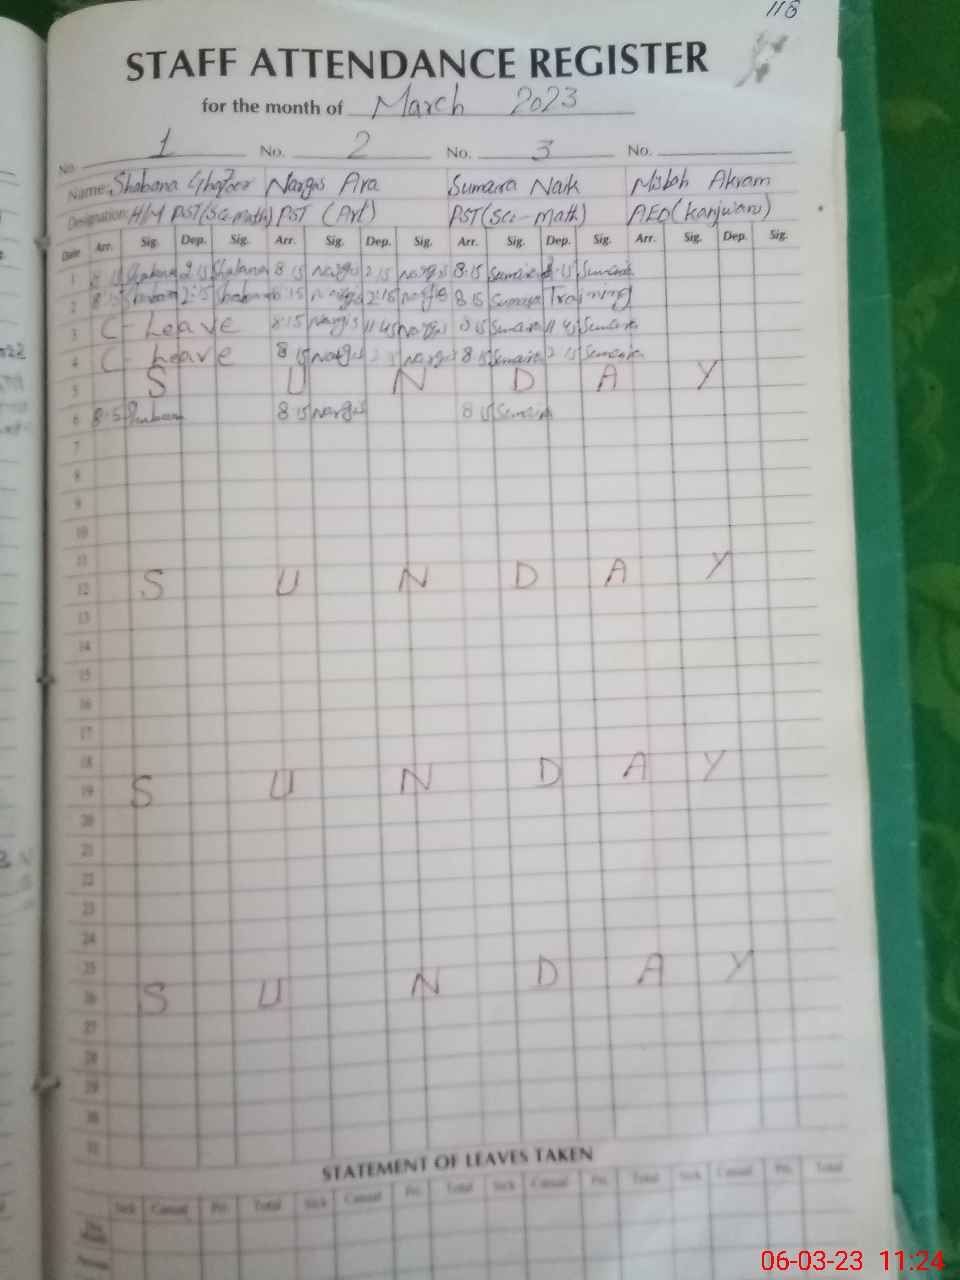 118
STAFF ATTENDANCE REGISTER
for the month of March 2023
No. 1 No. 2 No. 3 No.
Name: Shabana Ghafoor Nargis Ara Sumaira Naik Misbah Akram
Designation: H/M PST(Sci-math) PST (Art) PST(Sci-math) AEO(Kanjwani)
Date Arr. Sig. Dep. Sig. Arr. Sig. Dep. Sig. Arr. Sig. Dep. Sig. Arr. Sig. Dep. Sig.
1 8 15 Shabana 2 15 Shabana 8 15 Nargis 2 15 Nargis 8.15 Sumaira 2.15 Sumaira
2 8.15 Shabana 2:15 Shabana 8 15 Nargis 2:15 Nargis 8 15 Sumaira Training
3 C- Leave 8:15 Nargis 11 45 Nargis 8 15 Sumaira 11 45 Sumaira
4 C- Leave 8 15 Nargis 2 15 Nargis 8 15 Sumaira 2 15 Sumaira
5 S U N D A Y
6 8.15 Shabana 8 15 Nargis 8 15 Sumaira
7
8
9
10
11
12 S U N D A Y
13
14
15
16
17
18
19 S U N D A Y
20
21
22
23
24
25
26 S U N D A Y
27
28
29
30
31
STATEMENT OF LEAVES TAKEN
Sick Casual Pri. Total Sick Casual Pri. Total Sick Casual Pri. Total Sick Casual Pri. Total
06-03-23 11:24